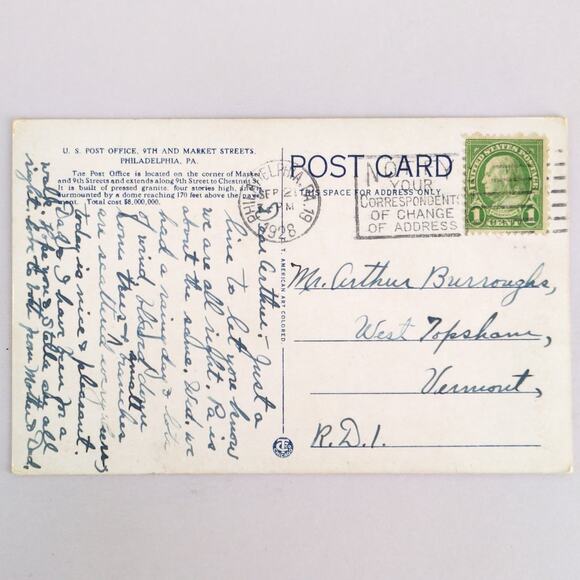 U. S. POST OFFICE, 9TH AND MARKET STREETS,
PHILADELPHIA, PA.
The Post Office is located on the corner of Market
and 9th Streets and extends along 9th Street to Chestnut St.
It is built of pressed granite, four stories high, and
surmounted by a dome reaching 170 feet above the pave-
ment. Total cost $8,000,000.
POST CARD
THIS SPACE FOR ADDRESS ONLY
PHILADELPHIA, PA. 19
SEP 2
PM
1928
NOTIFY
YOUR
CORRESPONDENTS
OF CHANGE
OF ADDRESS
UNITED STATES POSTAGE
1 1
CENT
Mr. Arthur Burroughs,
West Topsham,
Vermont,
R.D.1.
AMERICAN ART COLORED
Dear Arthur:- Just a
line to let you know
we are all right. Pa is
about the same. Wed. we
had a rainy day & lots
of wind blowed down
some trees & small branches
are scattered everywhere
today is nice & pleasant.
Dad & I have been for a
walk. Hope you & Stella are all
right. Lots of love from Mother & Dad.